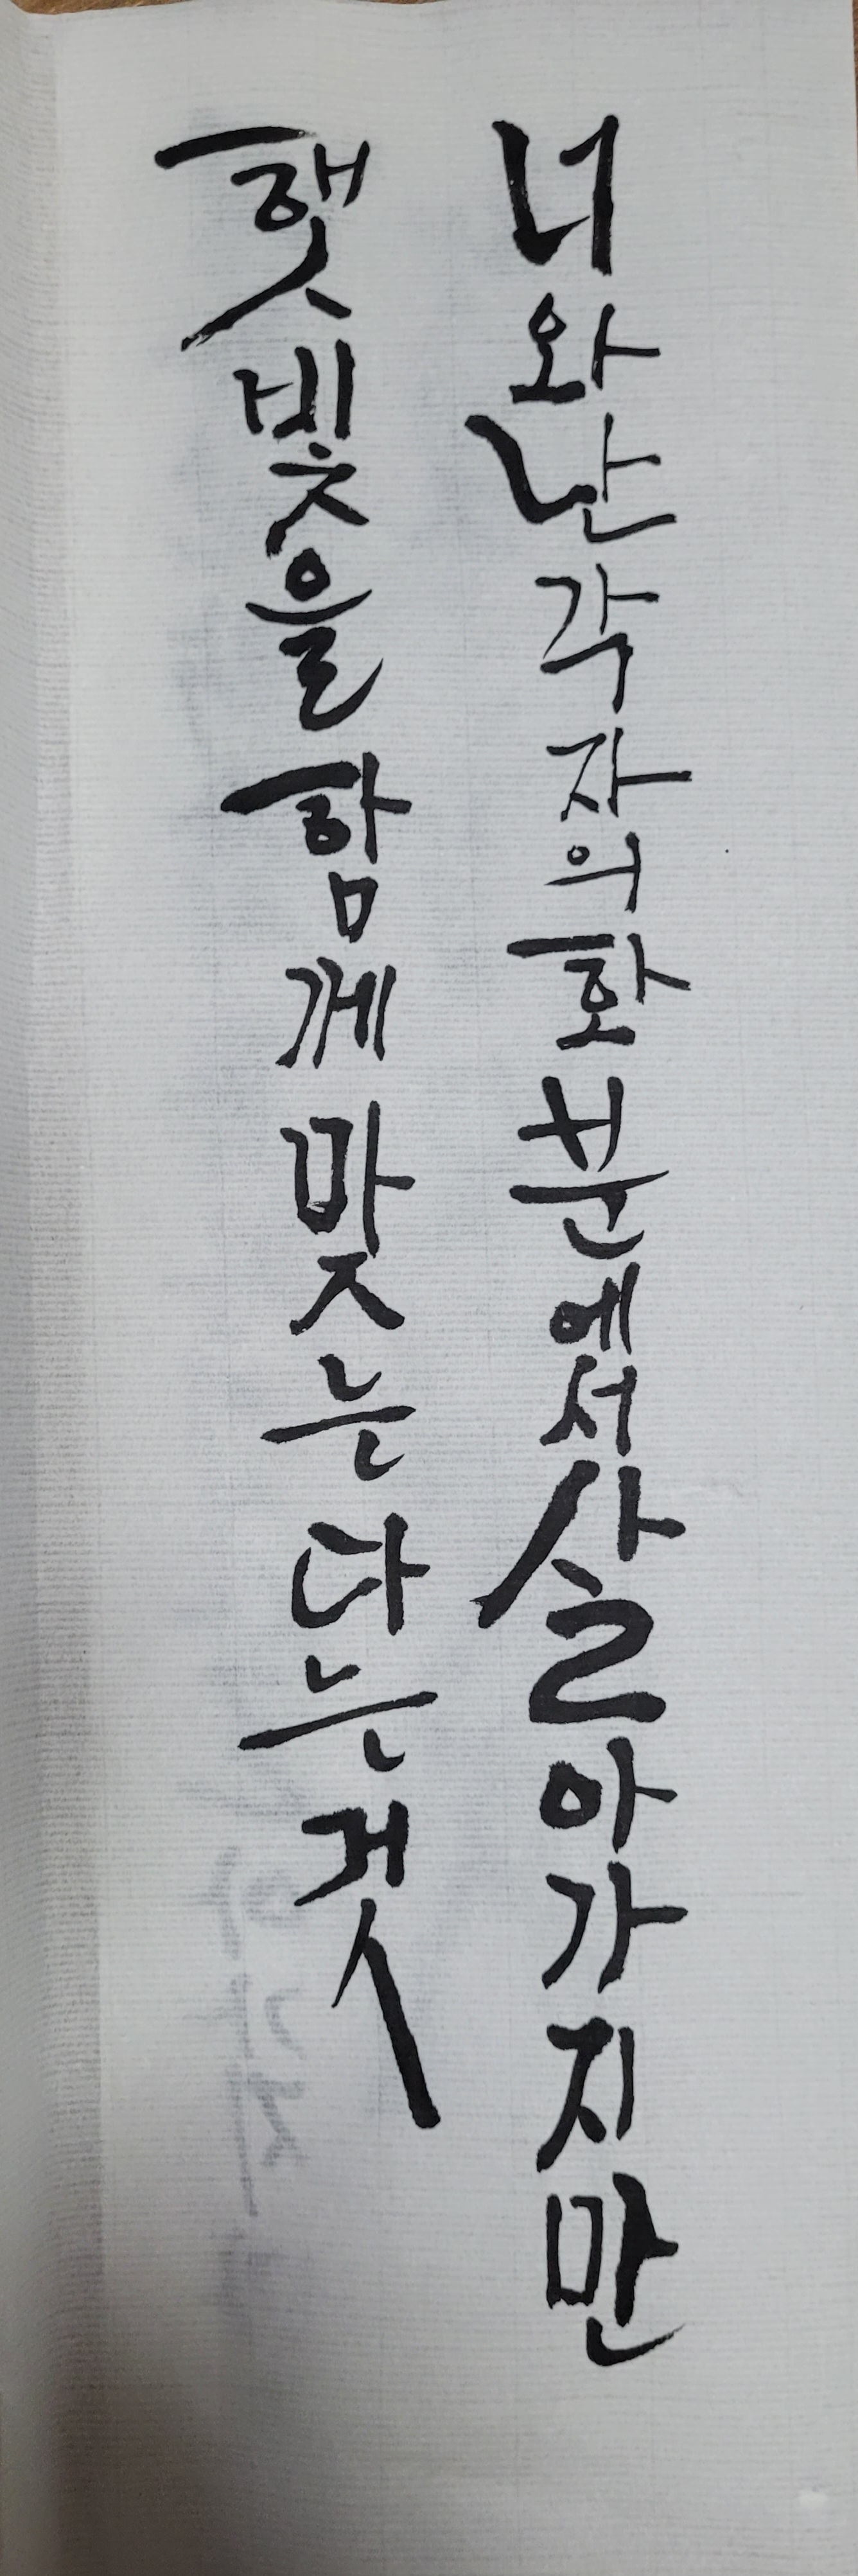 너와 난 각자의 화분에서 살아가지만
햇빛을 함께 맞는다는 것